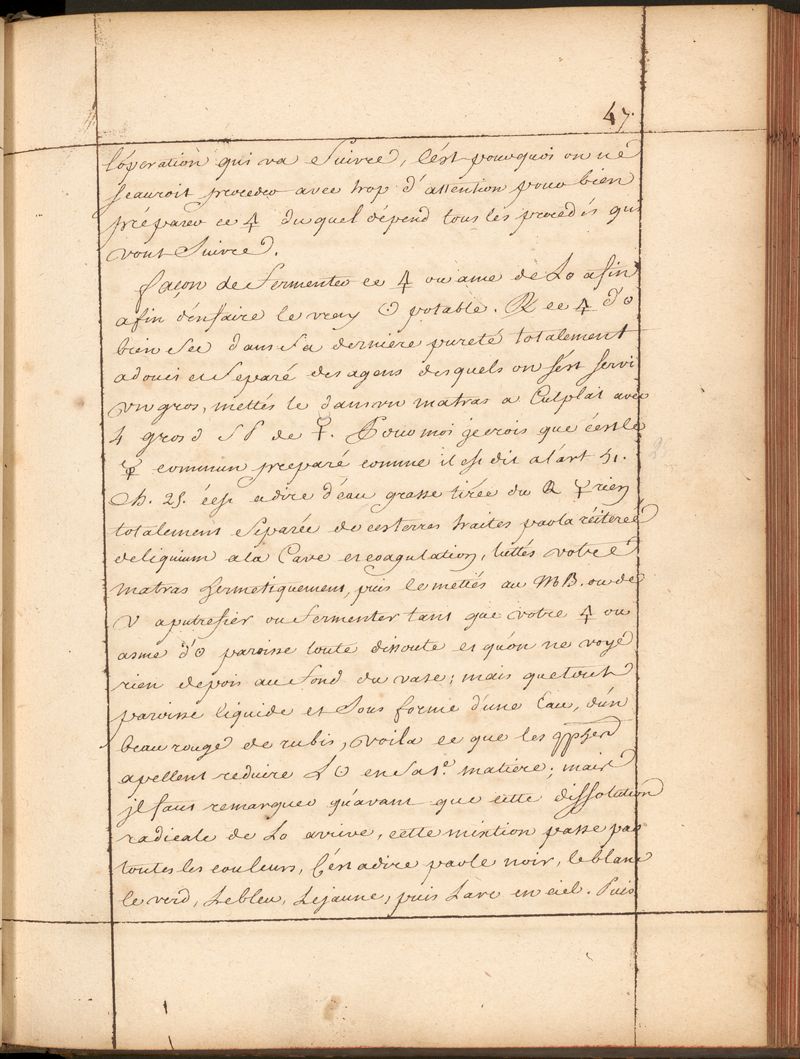 47.
l'opération qui va Suivre, C'est pourquoi on ne
sçauroit proceder avec trop d'attention pour bien
préparer ce 🜍 duquel dépend tous les procedés qui
vont Suivre.
façon de fermenter ce 🜍 ou ame de Lo afin
afin d'en faire le vray ☉ potable. ℞ ce 🜍 d'☉
bien Sec dans Sa derniere pureté totalement
adouci et Separé des agens desquels on s'est servi
un gros, mettés le dans un matras a Culplat avec
4 gros d' SP de ☿. Pour moi je crois que c'est le
commun preparé comme il est dit a l'art 51.
Ch. 25. c'est a dire d'eau grasse tirée du rien
totalement Separée de ces terres traites par la réiterée
deliquium a la Cave et coagulation, luttés votre
matras hermetiquement, puis le mettés au MB. ou de
V a putrefier ou fermenter tant que votre 🜍 ou
asme d'☉ paroisse toute dissoute et qu'on ne voye
rien depois au fond du vase; mais que tout
paroisse liquide et Sous forme d'une Eau, d'un
beau rouge de rubis, voila ce que les
apellent reduire L ☉ en Sa 1e. matiere; mais
jl faut remarquer qu'avant que cette dissolution
radicale de Lo arrive, cette mixtion passe par
toutes les couleurs, C'est a dire par le noir, le blanc
le verd, Le bleu, Le jaune, puis L'arc en ciel. Puis